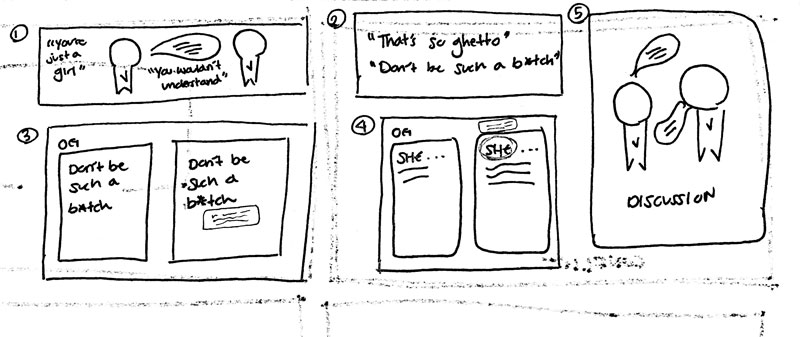 ①
"you're
just a
girl"
"You wouldn't
understand"
②
"That's so ghetto"
"Don't be such a b*tch"
③
OG
Don't be
such a
b*tch
Don't be
such a
b*tch
④
OG
SHE...
SHE...
⑤
DISCUSSION